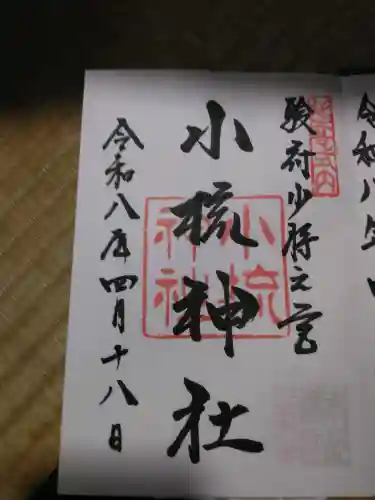 駿府少将之宮
小梳神社
小梳神社
令和八年四月十八日
令和八年四